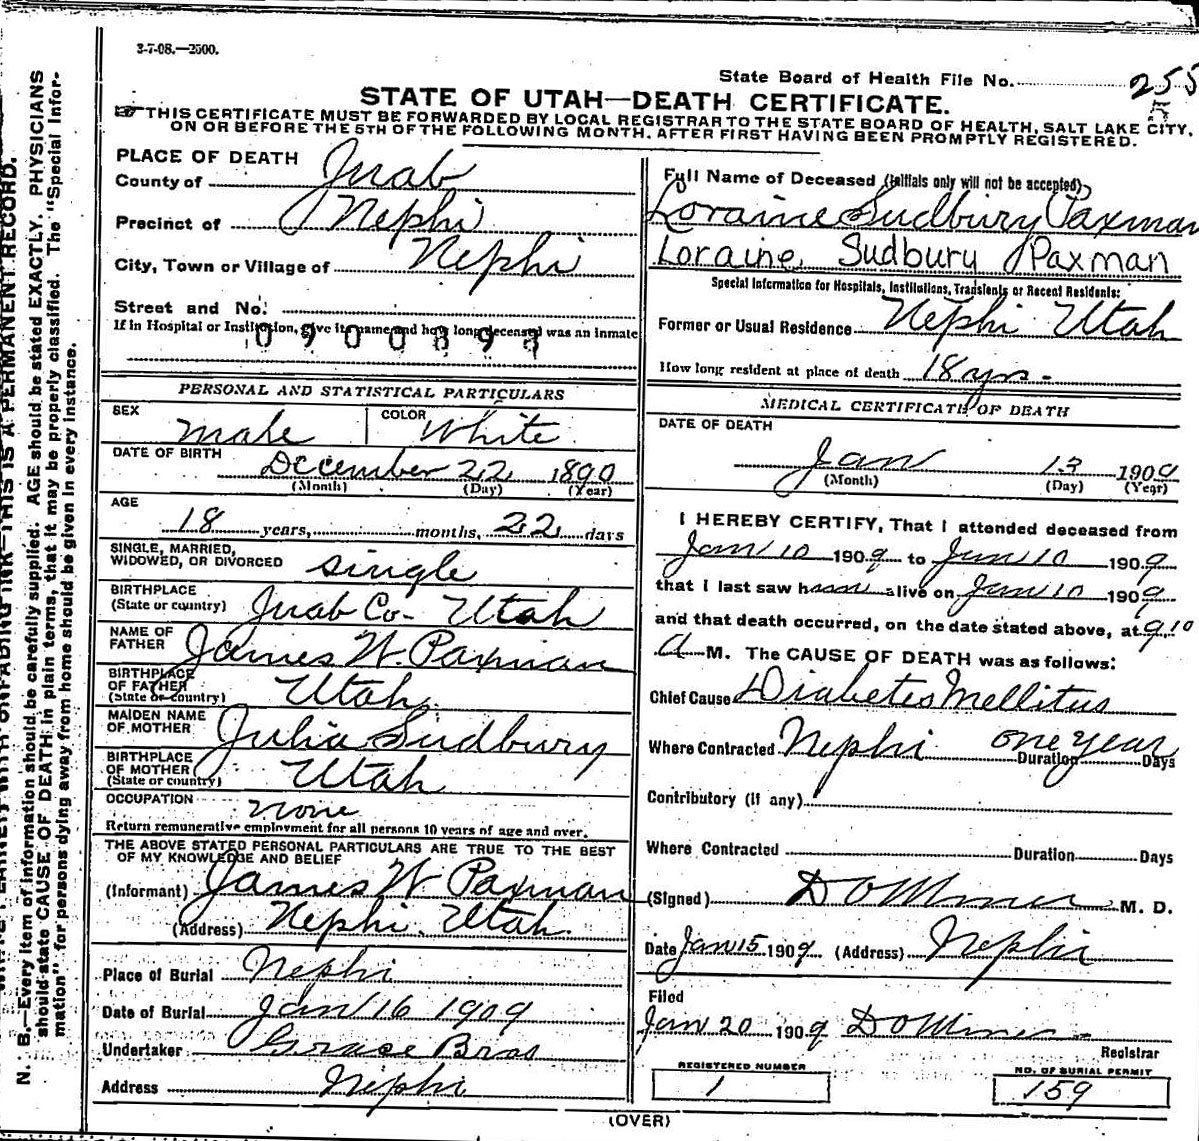 3-7-08.—2500.
State Board of Health File No. 255
STATE OF UTAH—DEATH CERTIFICATE.
THIS CERTIFICATE MUST BE FORWARDED BY LOCAL REGISTRAR TO THE STATE BOARD OF HEALTH, SALT LAKE CITY,
ON OR BEFORE THE 5TH OF THE FOLLOWING MONTH, AFTER FIRST HAVING BEEN PROMPTLY REGISTERED.
PLACE OF DEATH
County of Juab
Precinct of Nephi
City, Town or Village of Nephi
Street and No.
If in Hospital or Institution, give its name and how long deceased was an inmate
0900393
PERSONAL AND STATISTICAL PARTICULARS
SEX male COLOR White
DATE OF BIRTH December 22 1890
(Month) (Day) (Year)
AGE
18 years, months, 22 days
SINGLE, MARRIED,
WIDOWED, OR DIVORCED single
BIRTHPLACE
(State or country) Juab Co- Utah
NAME OF
FATHER James W. Paxman
BIRTHPLACE
OF FATHER
(State or country) Utah
MAIDEN NAME
OF MOTHER Julia Sudbury
BIRTHPLACE
OF MOTHER
(State or country) Utah
OCCUPATION none
Return remunerative employment for all persons 10 years of age and over.
THE ABOVE STATED PERSONAL PARTICULARS ARE TRUE TO THE BEST
OF MY KNOWLEDGE AND BELIEF
(Informant) James W Paxman
(Address) Nephi Utah
Place of Burial Nephi
Date of Burial Jan 16 1909
Undertaker Grace Bros
Address Nephi
Full Name of Deceased (Initials only will not be accepted)
Loraine Sudbury Paxman
Loraine Sudbury Paxman
Special Information for Hospitals, Institutions, Transients or Recent Residents:
Former or Usual Residence Nephi Utah
How long resident at place of death 18 yrs.
MEDICAL CERTIFICATE OF DEATH
DATE OF DEATH
Jan 13 1909
(Month) (Day) (Year)
I HEREBY CERTIFY, That I attended deceased from
Jan 10 1909 to Jan 10 1909
that I last saw him alive on Jan 10 1909
and that death occurred, on the date stated above, at 9 10
A M. The CAUSE OF DEATH was as follows:
Chief Cause Diabetes Mellitus
Where Contracted Nephi Duration one year Days
Contributory (if any)
Where Contracted Duration Days
(Signed) D O Miner M. D.
Date Jan 15 1909 (Address) Nephi
Filed
Jan 20 1909 D O Miner
Registrar
REGISTERED NUMBER
1
NO. OF BURIAL PERMIT
159
(OVER)
N. B.—Every item of information should be carefully supplied. AGE should be stated EXACTLY. PHYSICIANS
should state CAUSE OF DEATH in plain terms, that it may be properly classified. The "Special Infor-
mation" for persons dying away from home should be given in every instance.
UNFADING INK—THIS IS A PERMANENT RECORD.